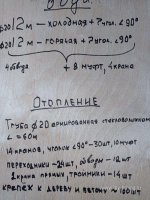 вода.
ф20/2м – холодная + 7 угол. <90°
ф20/2м – горячая + 7 угол. <90°
4 + 8 муфт, 4 крана
Отопление
Труба ф20 армированная стекловолокном
L = 60м
14 кранов, уголок <90° – 30шт, 10 муфт
переходники – 24шт, – 12шт
2 крана прямых, тройники – 14шт
крепёж к дереву и бетону ~ 100шт